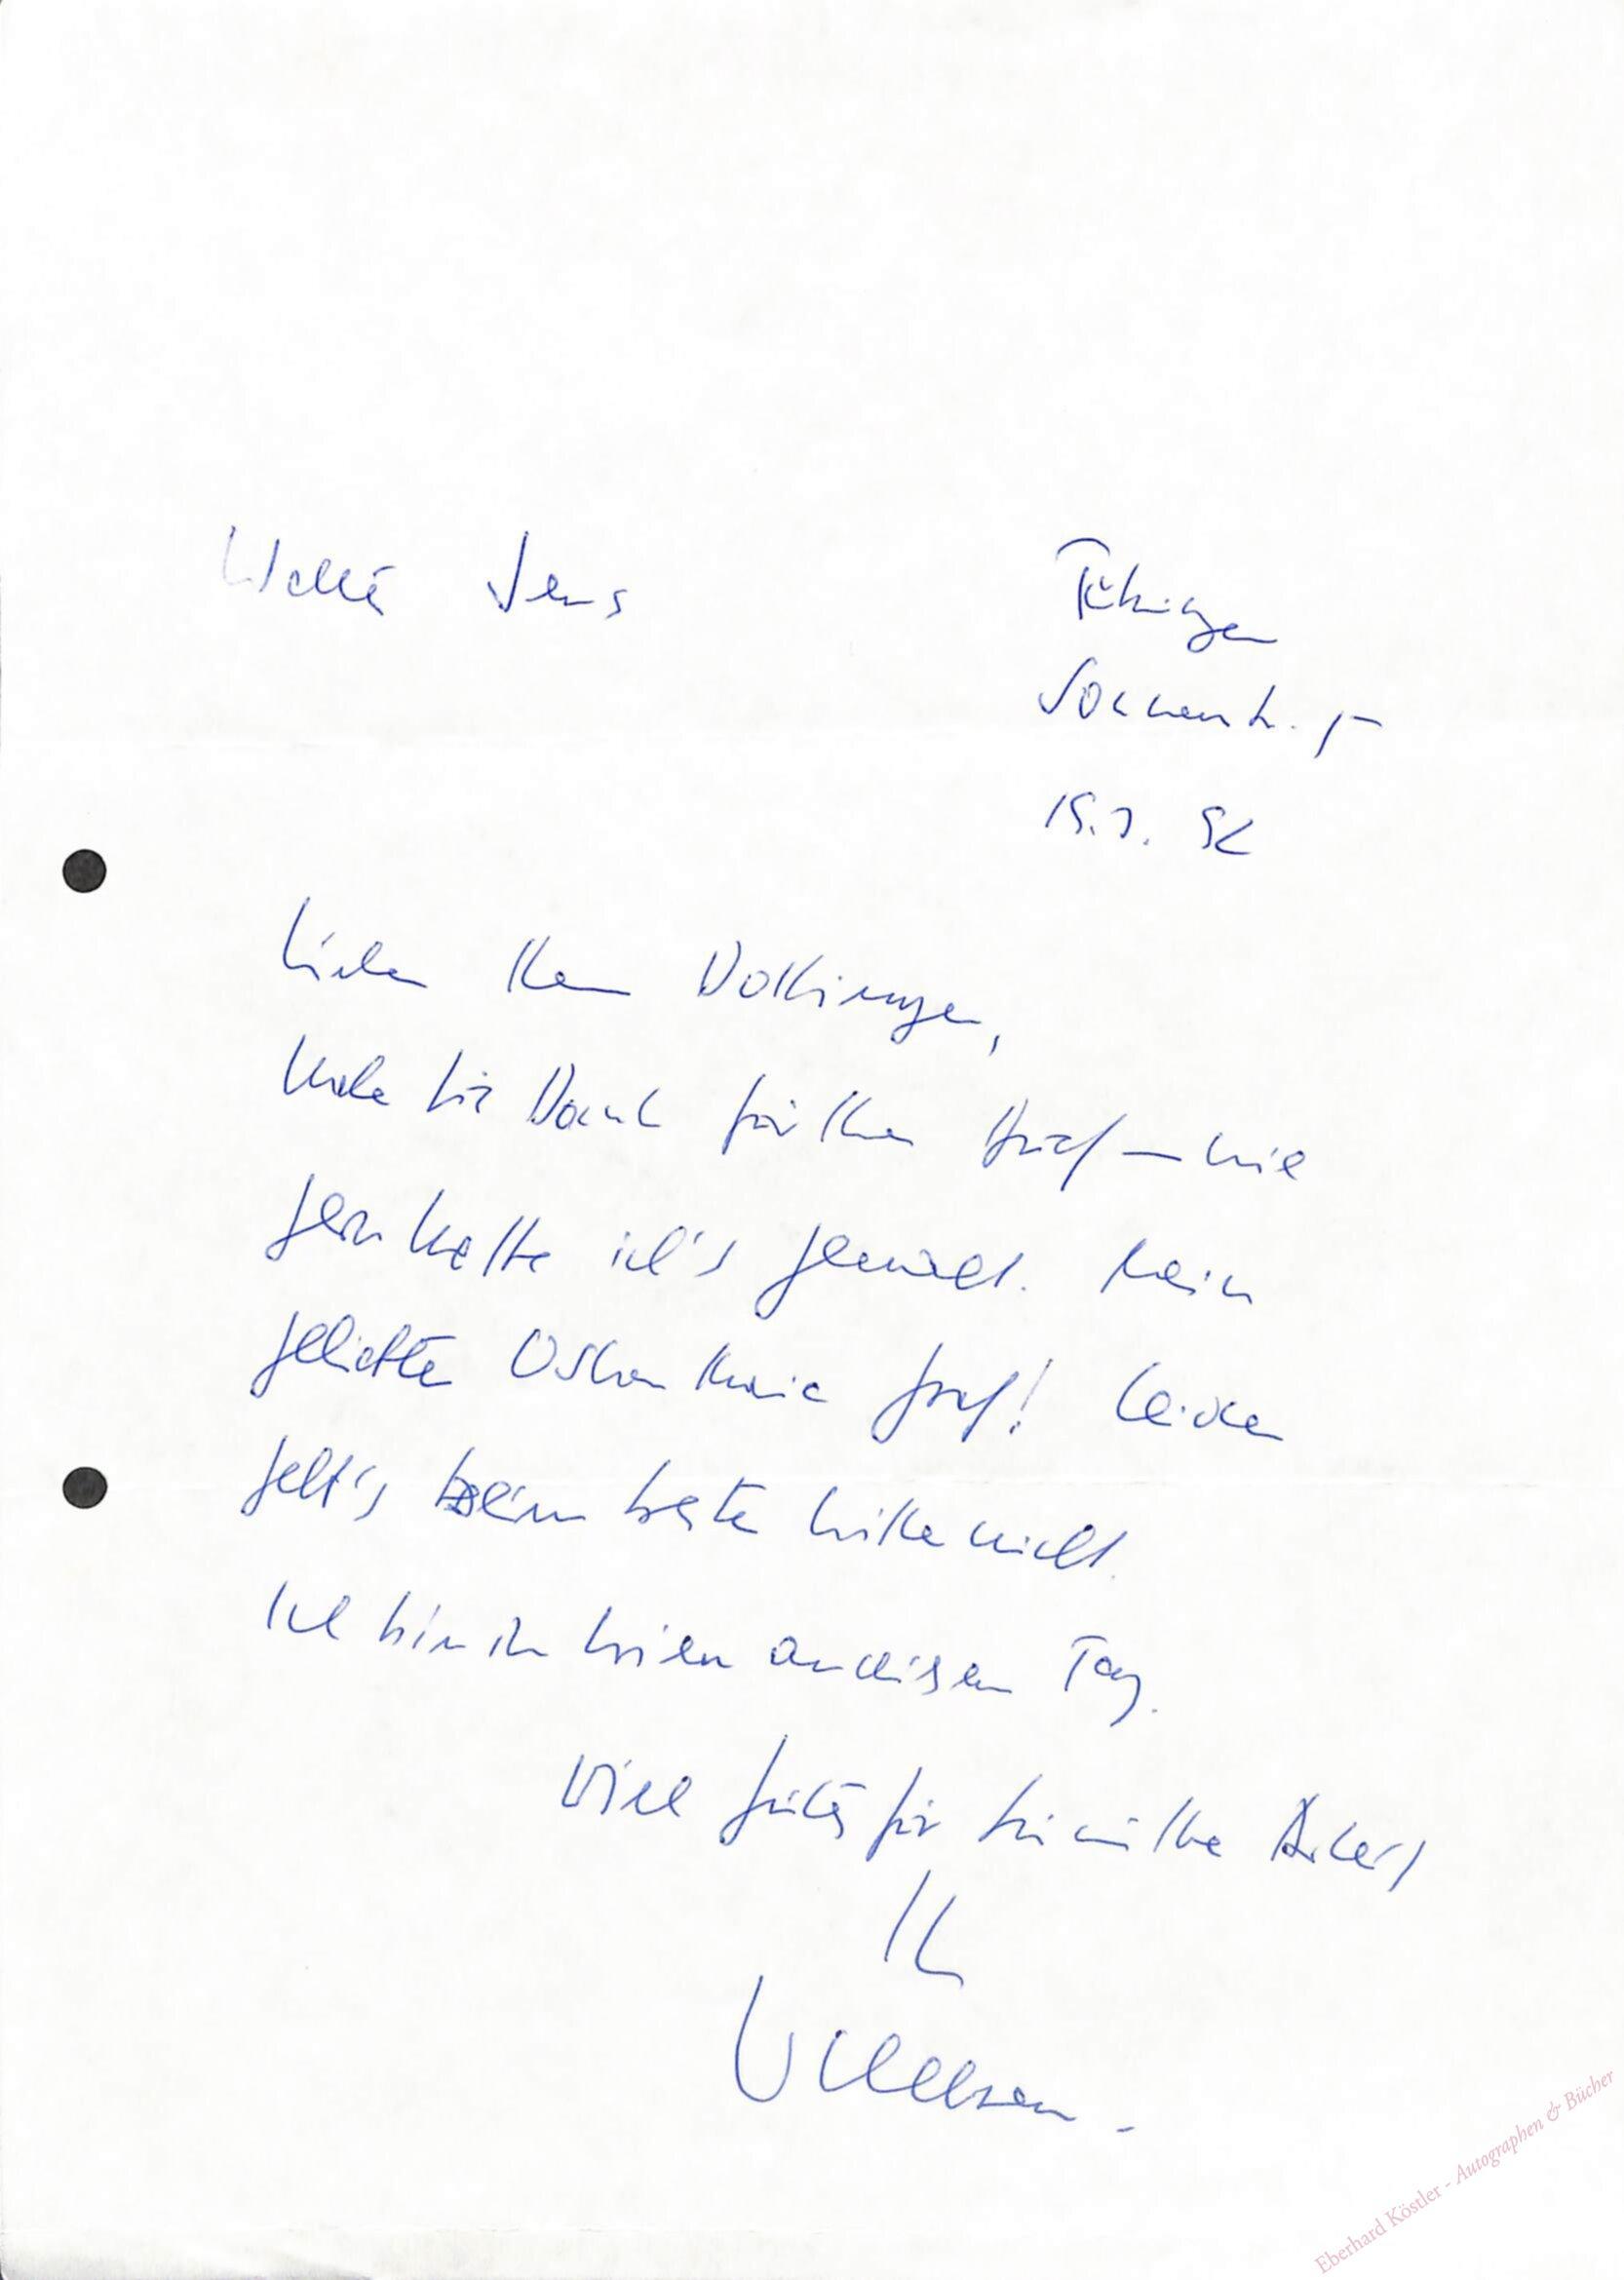 Walter Jens
Tübingen
Sonnenstr. 5
15.7. 92
Lieber Herr Dollinger,
habe für Dank für Ihren Brief – wie
gern hätte ich's gemacht. Mein
geliebter Oskar Maria Graf! Leider
geht's beim besten Willen nicht.
Ich bin in Wien an diesem Tag.
Viel Gutes für Arbeit
Ihr
Walter Jens
Eberhard Köstler - Autographen & Bücher